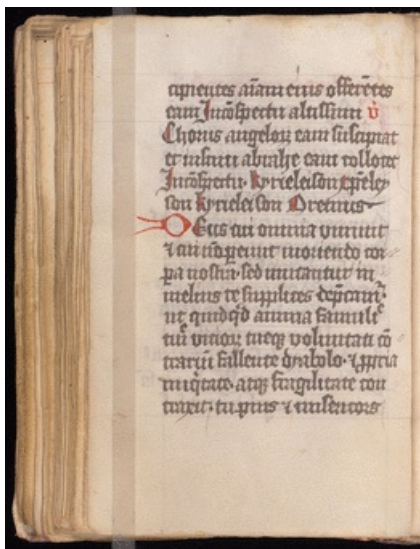 cipientes aīam eius offerētes
eam Incōspectu altissimi v̇
Chorus angeloꝝ eam suscipiat
et insinu abrahe eam collocet
Incōspectu. kyrieleison xp̄eley
son kyrieleison Oremus
Deus cui omnia viuunt
⁊ cui nō pereunt moriendo cor
pa nostra. sed mutantur in
melius te supplices dep̄camꝰ.
ut quidqͥd anima famule
tue vicioꝝ tueqꝫ voluntati cō
trariū fallente dyabolo. ⁊ ꝓpria
iniqͥtate. atqꝫ fragilitate con
traxit. tu pius ⁊ misericors